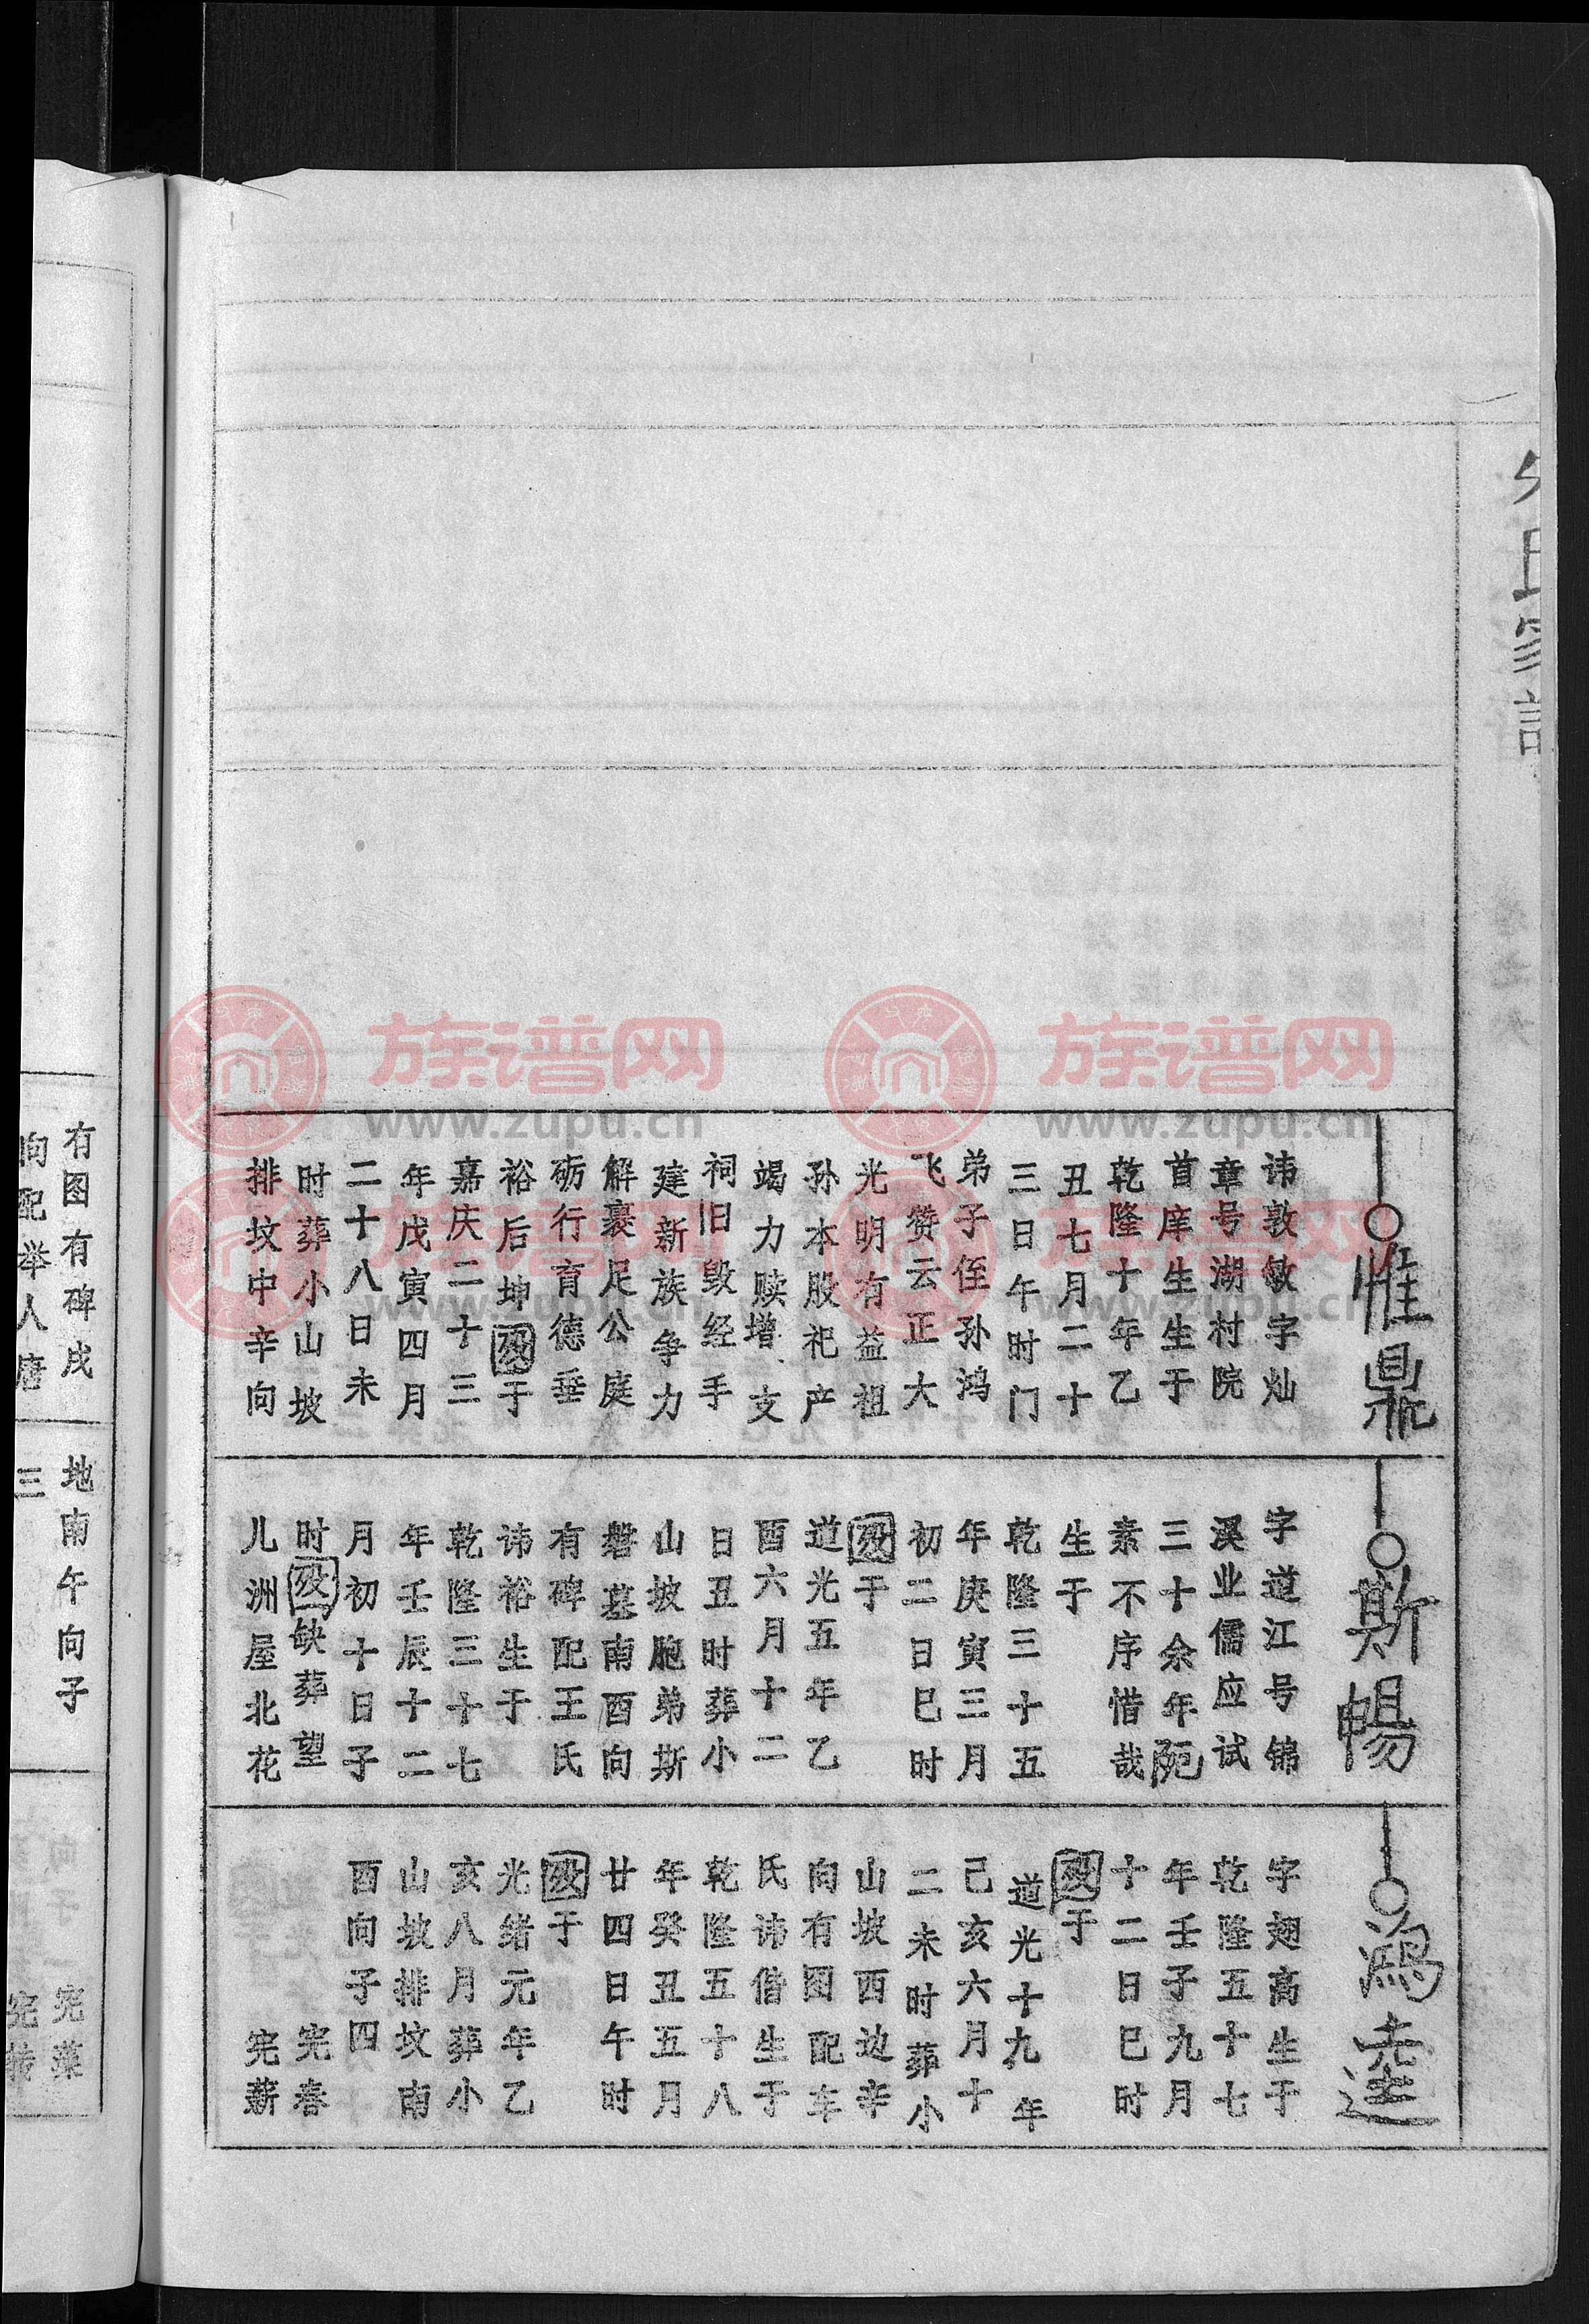 惟鼎
讳敦敏字灿
章号湖村院
首庠生生于
乾隆十年乙
丑七月二十
三日午时门
弟子侄孙鸿
飞赞云正大
光明有益祖
孙本股祀产
竭力赎增支
祠旧毁经手
建新族争力
解裹足公庭
砺行育德垂
裕后坤殁于
嘉庆二十三
年戊寅四月
二十八日未
时葬小山坡
排坟中辛向
斯暢
字道江号锦
溪业儒应试
三十余年
素不序惜哉
生于
乾隆三十五
年庚寅三月
初二日巳时
殁于
道光五年乙
酉六月十二
日丑时葬小
山坡胞弟斯
磐墓南酉向
有碑配王氏
讳裕生于
乾隆三十七
年壬辰十二
月初十日子
时殁缺葬望
儿洲屋北花
鴻逵
字翅高生于
乾隆五十七
年壬子九月
十二日巳时
殁于
道光十九年
己亥六月十
二未时葬小
山坡西边辛
向有图配车
氏讳偕生于
乾隆五十八
年癸丑五月
廿四日午时
殁于
光绪元年乙
亥八月葬小
山坡排坟南
酉向子四
宪春
宪薪
有图有碑戌
向配举人唐
地南午向子
三
宪藻
族谱网
www.zupu.cn
族谱网
www.zupu.cn
族谱网
www.zupu.cn
族谱网
www.zupu.cn